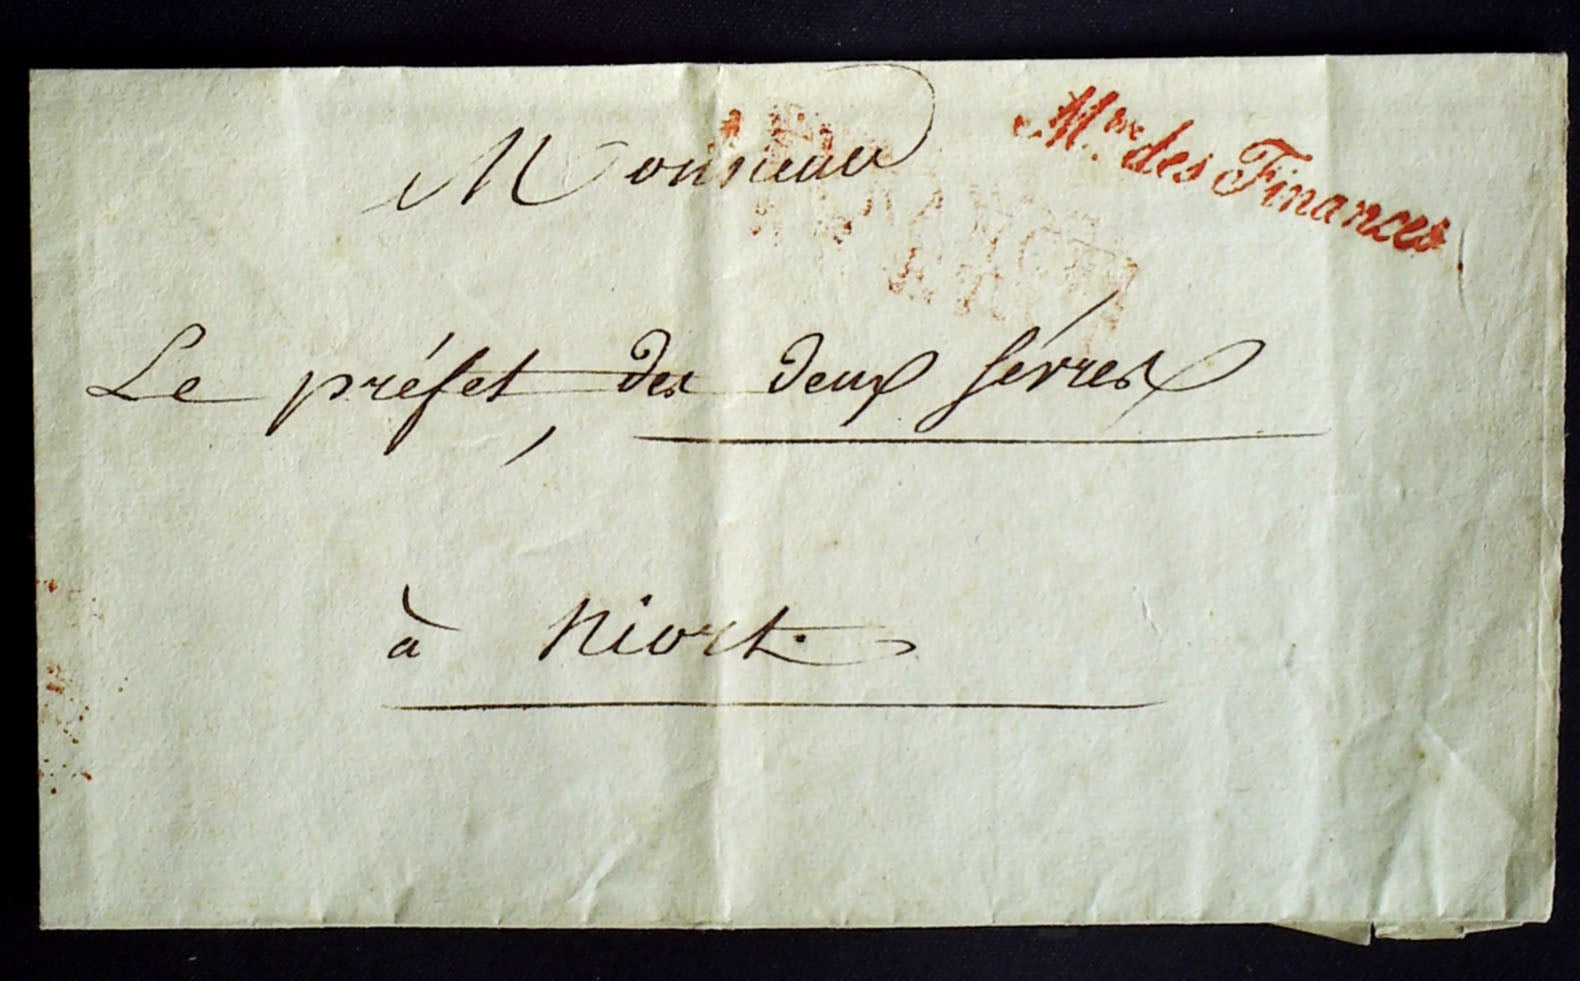 M.re des Finances
Monsieur
Le préfet, des deux sévres
à Niort.